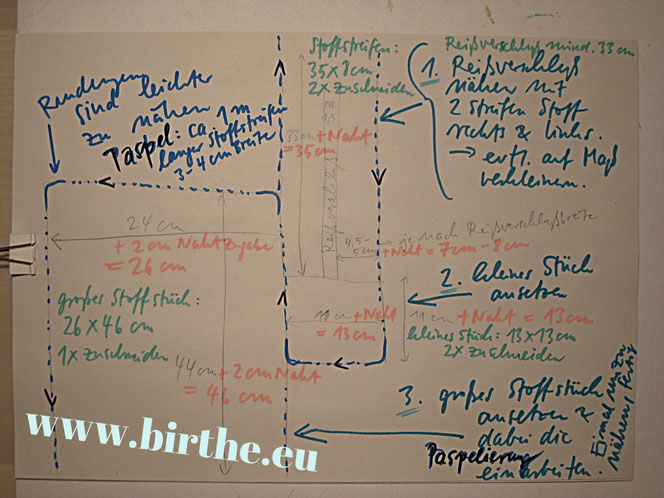 Rundungen
sind leichter
zu nähen
Paspel: ca 1 m
langer Stoffstreifen
3-4 cm Breite
Stoffstreifen:
35 x 8 cm
2x zuschneiden
33 cm + Naht
= 35 cm
Reißverschluß
Reißverschluß mind. 33 cm
1. Reißverschluß
nähen mit
2 Streifen Stoff
rechts & links.
→ evtl. auf Maß
verkleinern.
24 cm
+ 2 cm Nahtzugabe
= 26 cm
4,5-
5 cm je nach Reißverschlußbreite
+ Naht = 7 cm - 8 cm
2. kleines Stück
ansetzen
großes Stoffstück:
26 x 46 cm
1x zuschneiden
11 cm + Naht
= 13 cm
11 cm + Naht = 13 cm
kleines Stück: 13 x 13 cm
2x zuschneiden
44 cm + 2 cm Naht
= 46 cm
3. großes Stoffstück
ansetzen &
dabei die
Paspelierung
einarbeiten.
1 mal rundum
nähen, fertig
www.birthe.eu